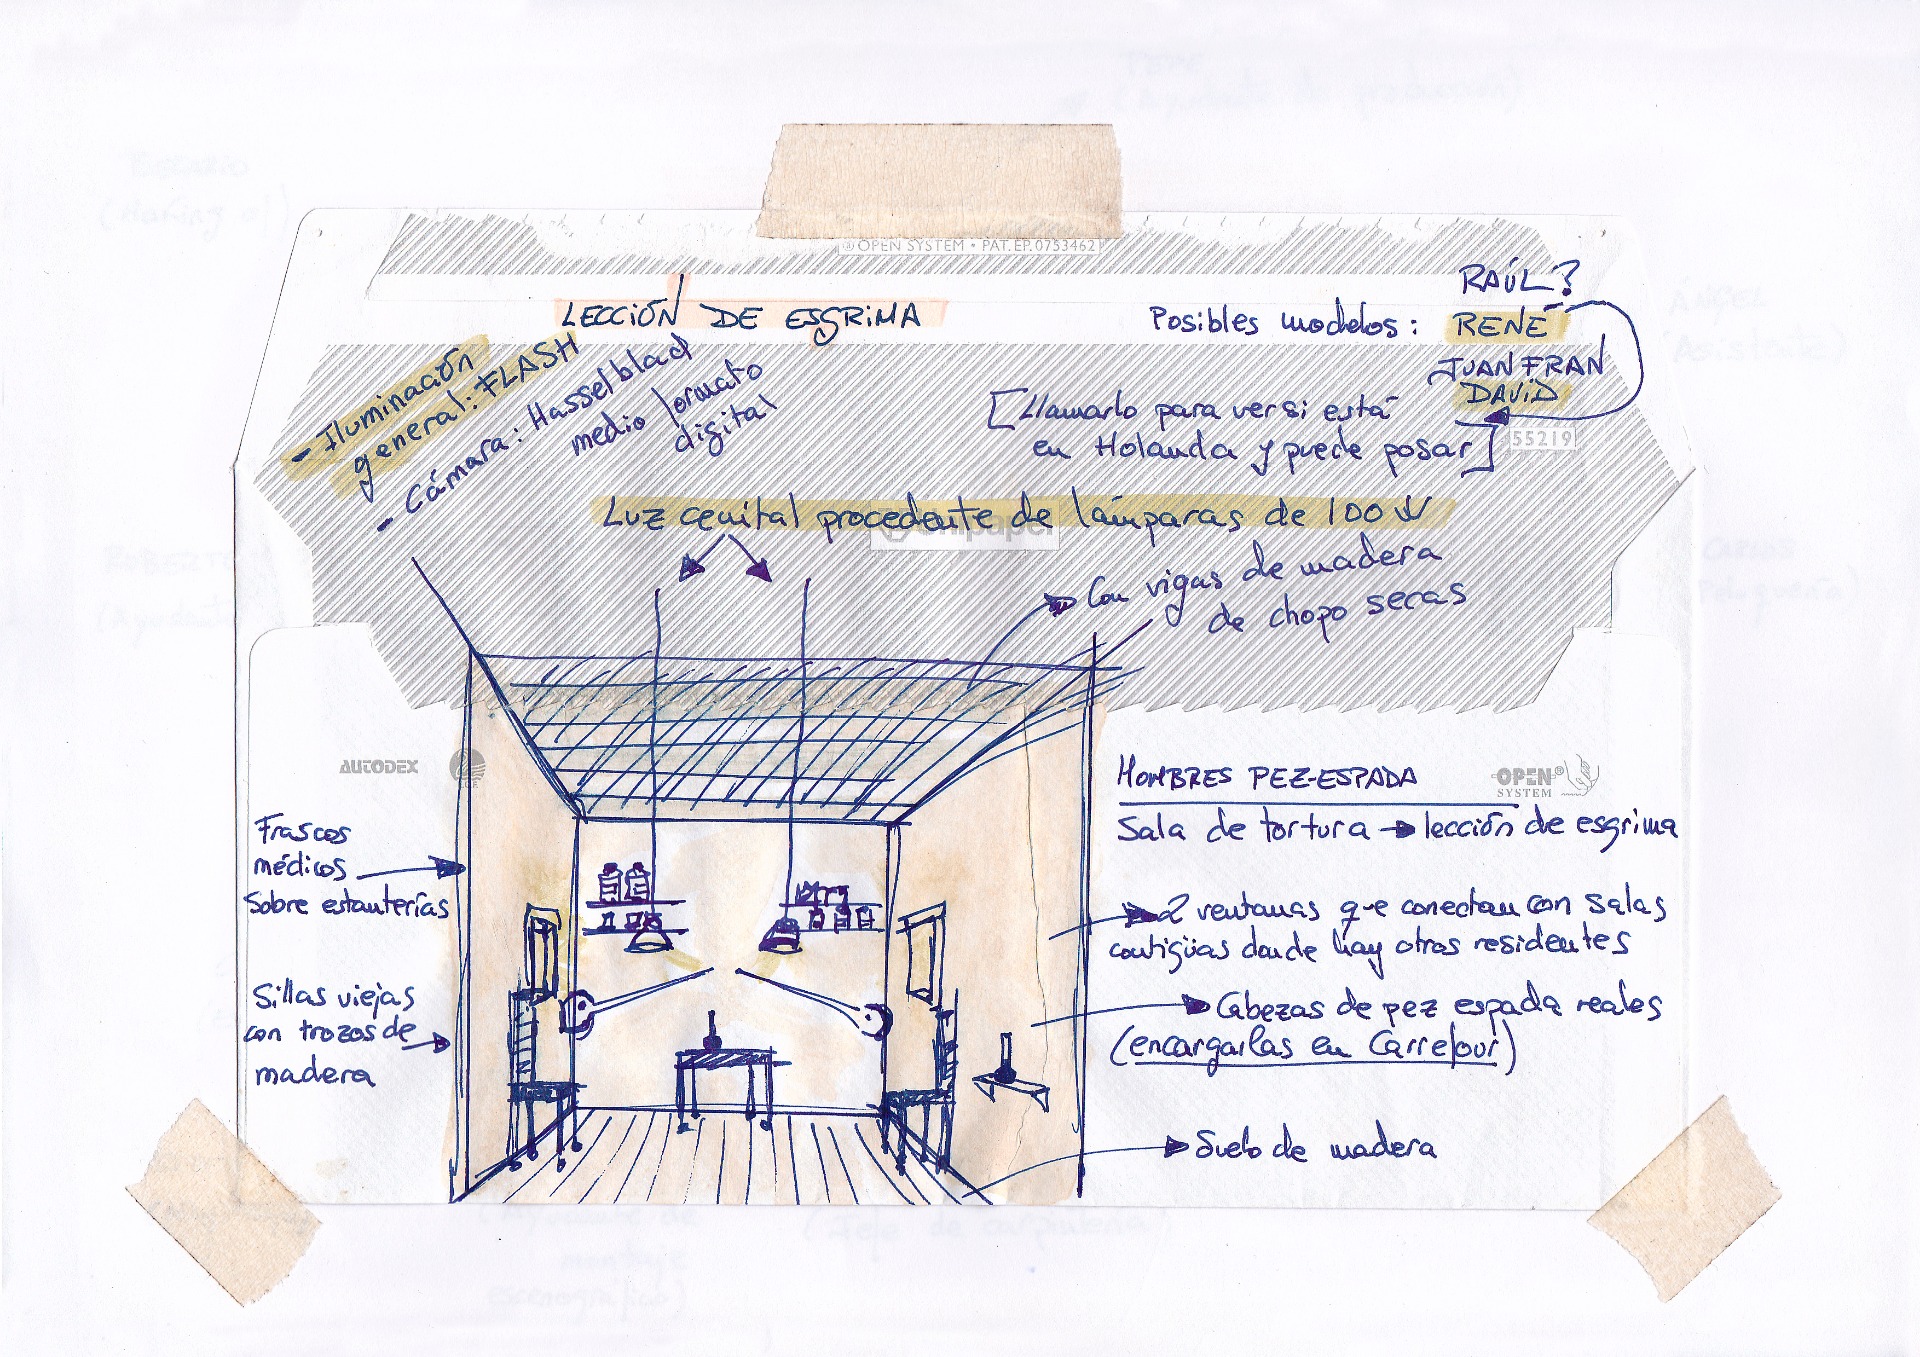 ® OPEN SYSTEM • PAT. EP. 0753462
LECCIÓN DE ESGRIMA
Posibles modelos:
RAÚL?
RENÉ
JUANFRAN
DAVID
[Llamarlo para ver si está
en Holanda y puede posar]
55219
- Iluminación
general: FLASH
- Cámara: Hasselblad
medio formato
digital
Luz cenital procedente de lámparas de 100 W
unipapel
Con vigas de madera
de chopo secas
AUTODEX
OPEN®
SYSTEM
Frascos
médicos
sobre estanterías
Sillas viejas
con trozos de
madera
HOMBRES PEZ-ESPADA
Sala de tortura → lección de esgrima
2 ventanas que conectan con salas
contigüas donde hay otros residentes
Cabezas de pez espada reales
(encargarlas en Carrefour)
Suelo de madera
ROBERTO
(Ayudante
ÁNGEL
(Asistente)
(Ayudante de
montaje
escenográfico)
(Jefe de carpintería)